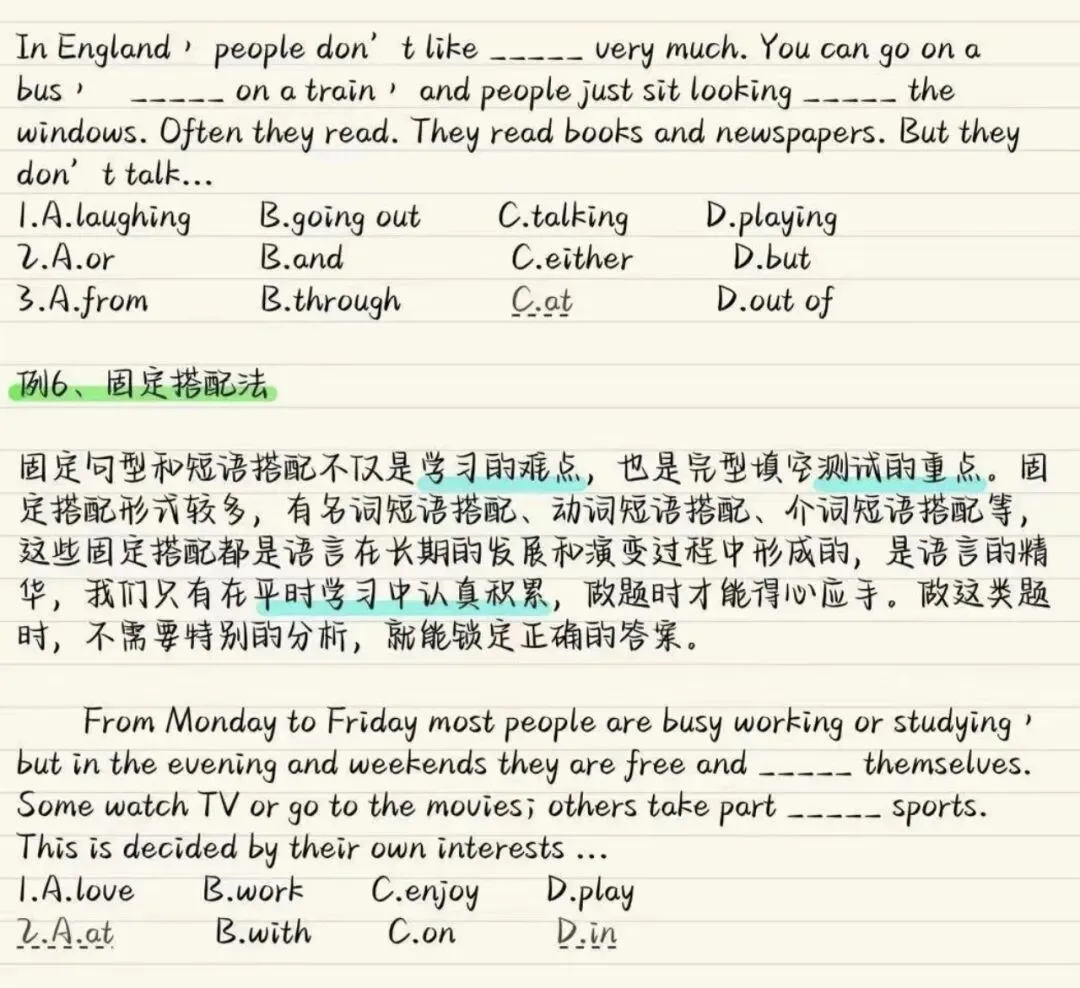 In England， people don't like _____ very much. You can go on a
bus， _____ on a train， and people just sit looking _____ the
windows. Often they read. They read books and newspapers. But they
don't talk...
1.A.laughing B.going out C.talking D.playing
2.A.or B.and C.either D.but
3.A.from B.through C.at D.out of
例6、固定搭配法
固定句型和短语搭配不仅是学习的难点，也是完型填空测试的重点。固
定搭配形式较多，有名词短语搭配、动词短语搭配、介词短语搭配等，
这些固定搭配都是语言在长期的发展和演变过程中形成的，是语言的精
华，我们只有在平时学习中认真积累，做题时才能得心应手。做这类题
时，不需要特别的分析，就能锁定正确的答案。
From Monday to Friday most people are busy working or studying，
but in the evening and weekends they are free and _____ themselves.
Some watch TV or go to the movies; others take part _____ sports.
This is decided by their own interests ...
1.A.love B.work C.enjoy D.play
2.A.at B.with C.on D.in